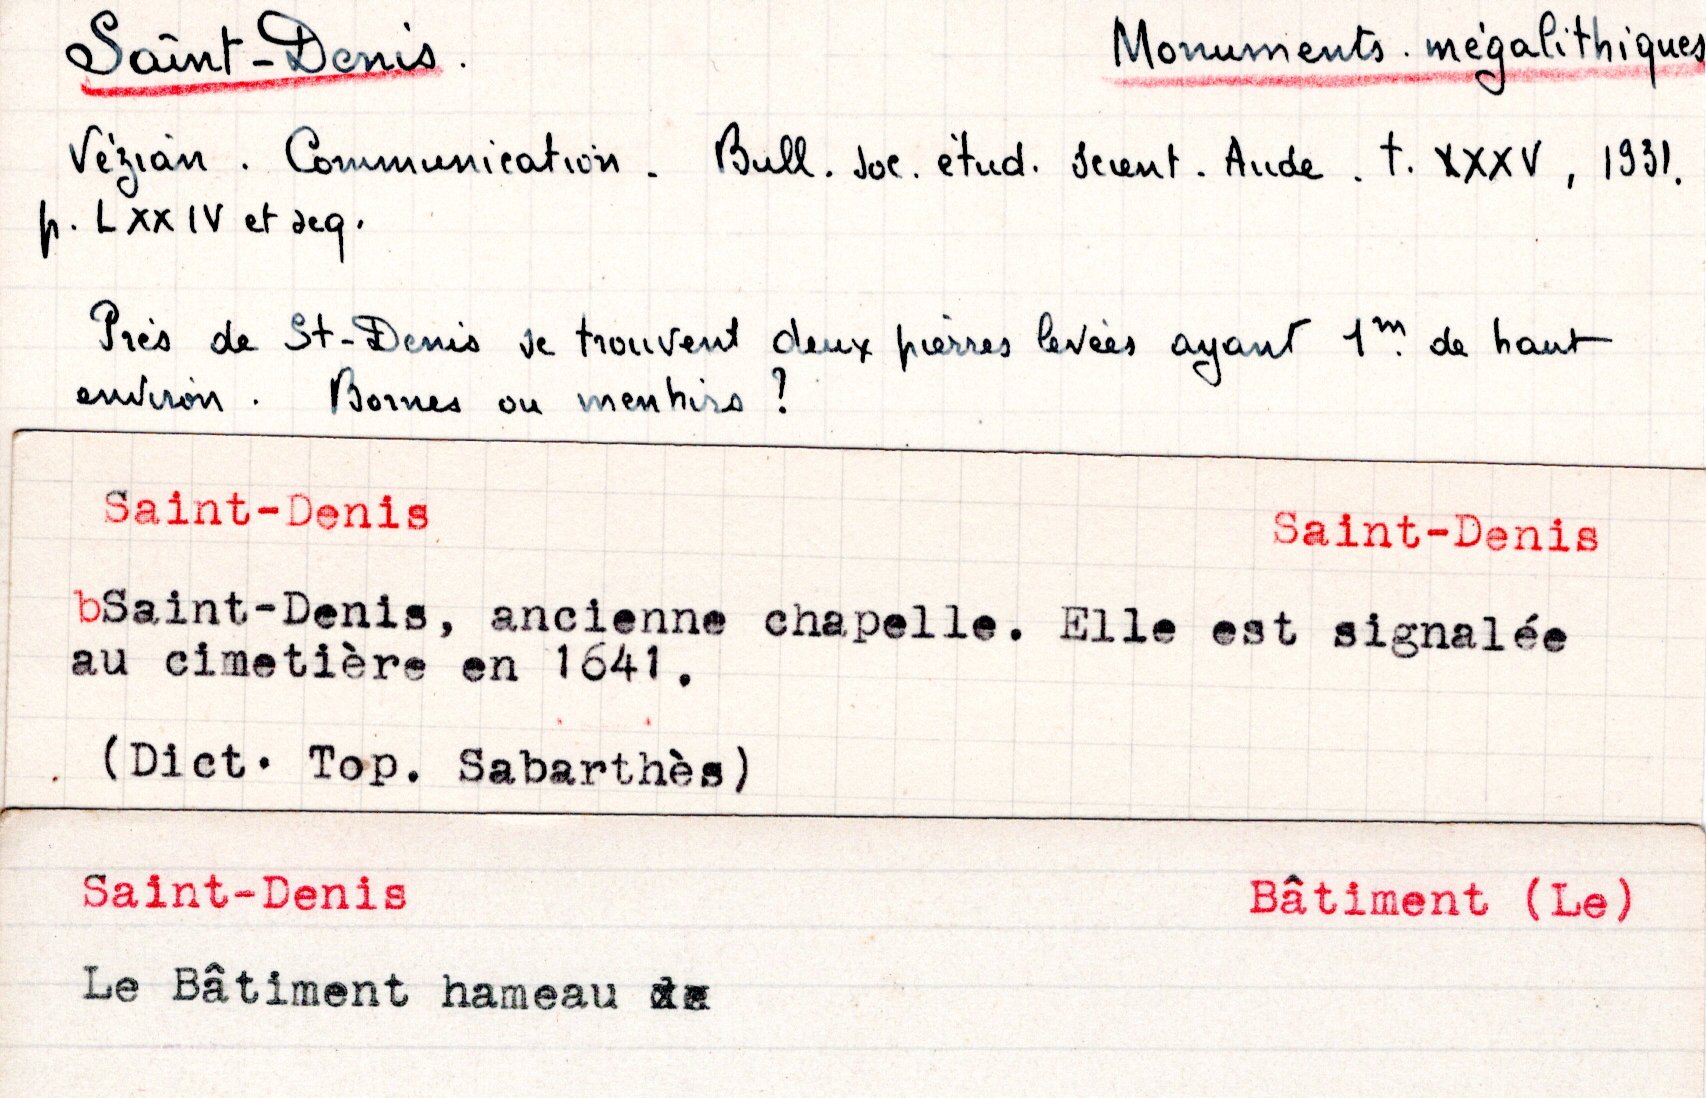 Saint-Denis. Monuments. mégalithiques
Vézian. Communication. Bull. soc. étud. scient. Aude. t. XXXV, 1931.
p. LXXIV et seq.
Près de St-Denis se trouvent deux pierres levées ayant 1m. de haut
environ. Bornes ou menhirs ?
Saint-Denis Saint-Denis
bSaint-Denis, ancienne chapelle. Elle est signalée
au cimetière en 1641.
(Dict. Top. Sabarthès)
Saint-Denis Bâtiment (Le)
Le Bâtiment hameau